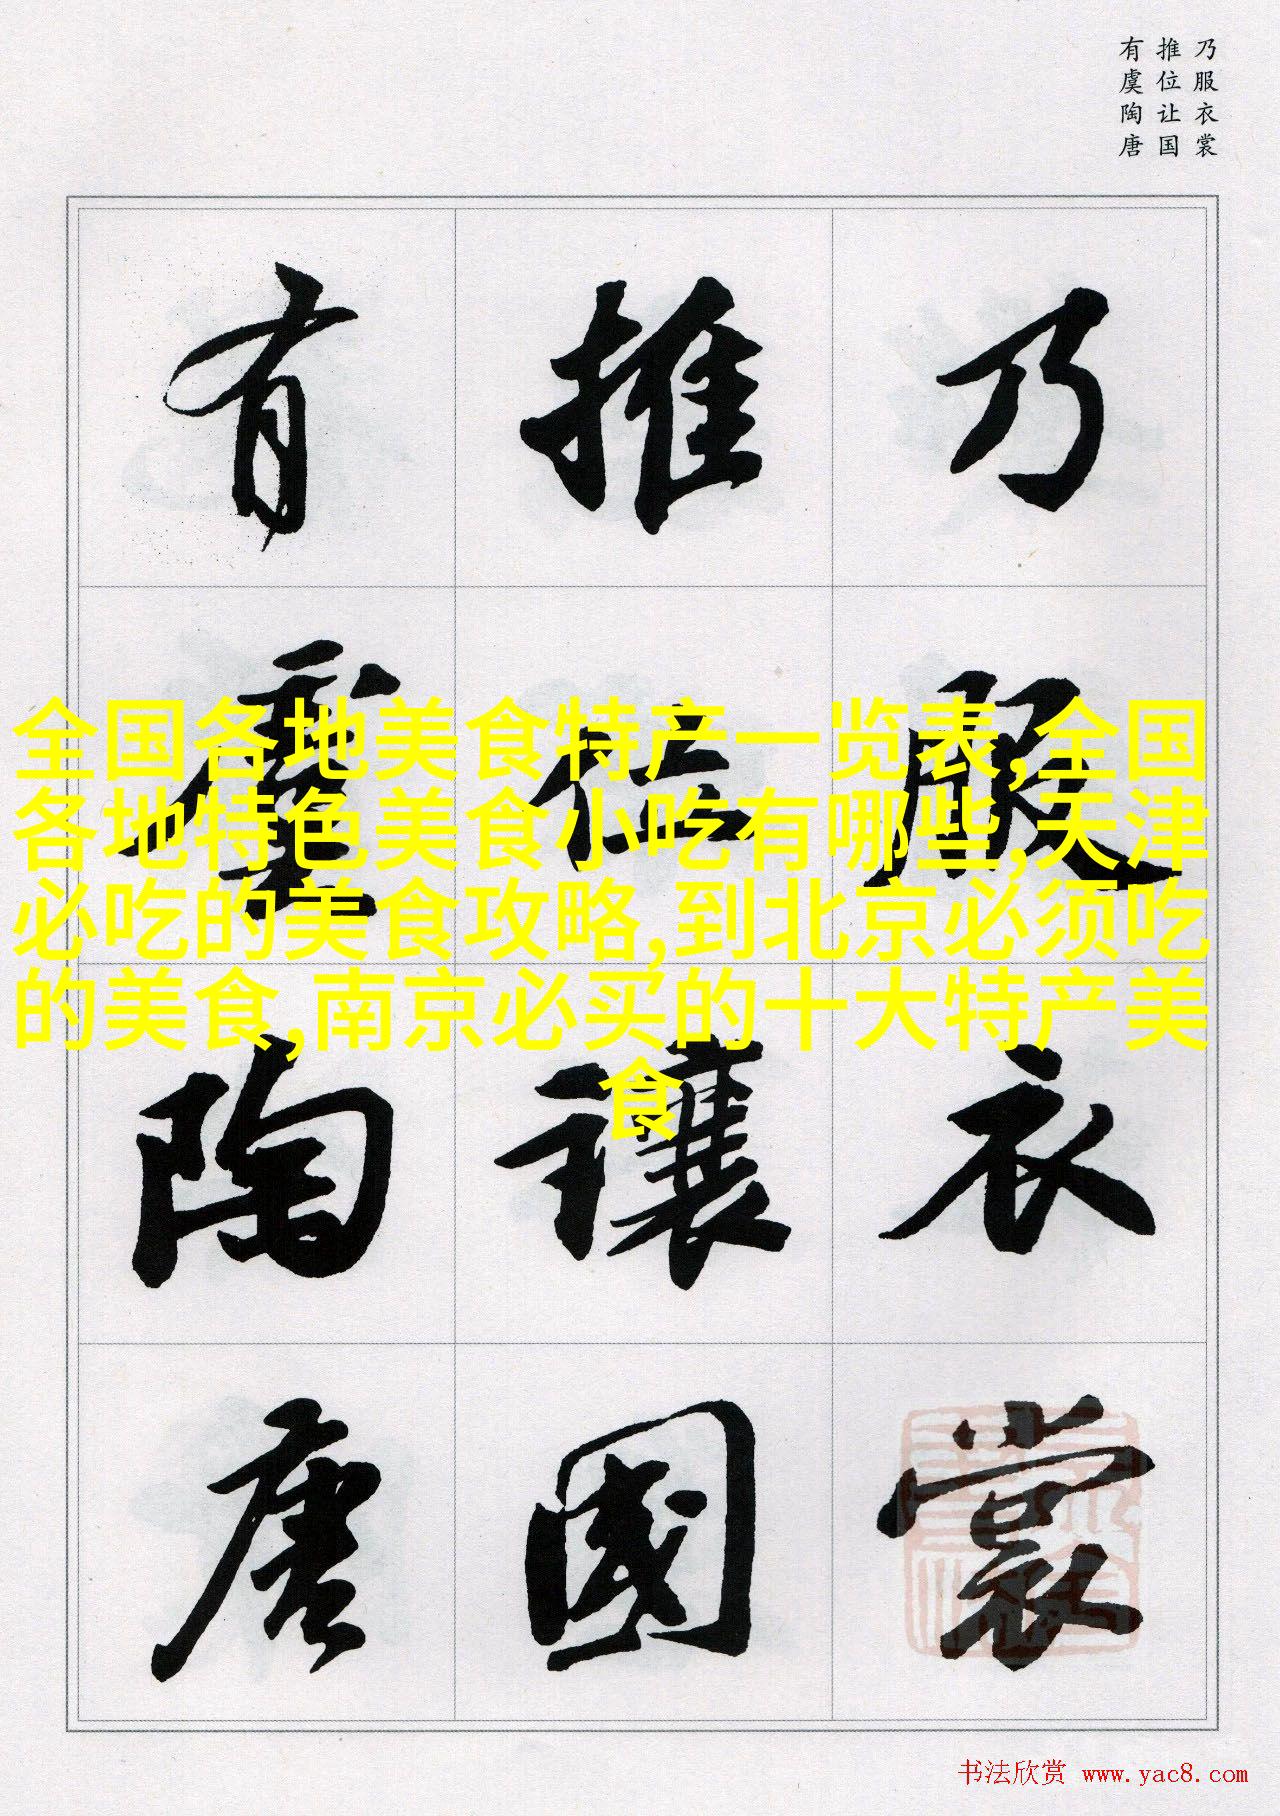 乃服衣裳
推位让国
有虞陶唐
乃服衣裳
推位讓國
有虞陶唐
全国各地美食特产一览表,全国
各地特色美食小吃有哪些,天津
必吃的美食攻略,到北京必须吃
的美食,南京必买的十大特产美
食
书法欣赏 www.yac8.com